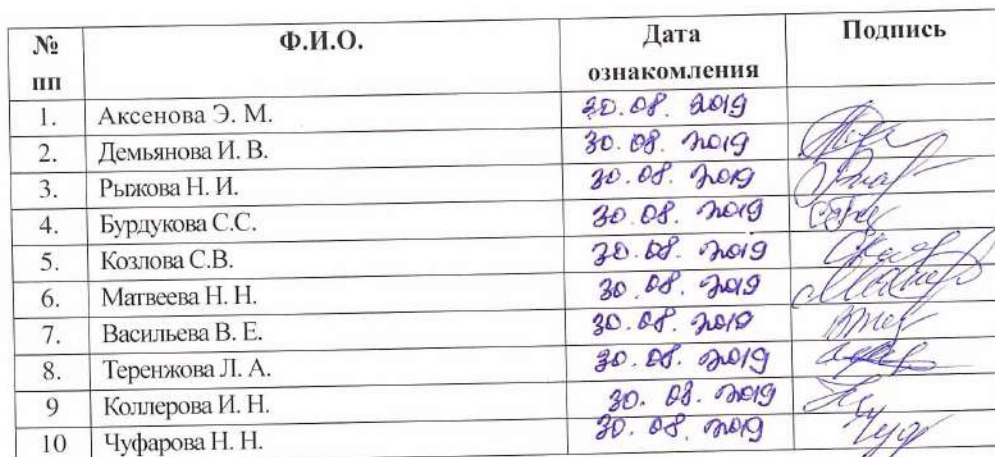 № пп Ф.И.О. Дата ознакомления Подпись
1. Аксенова Э. М. 30.08. 2019
2. Демьянова И. В. 30.08. 2019
3. Рыжова Н. И. 30.08. 2019
4. Бурдукова С.С. 30.08. 2019
5. Козлова С.В. 30.08. 2019
6. Матвеева Н. Н. 30.08. 2019
7. Васильева В. Е. 30.08. 2019
8. Теренжова Л. А. 30.08. 2019
9 Коллерова И. Н. 30. 08. 2019
10 Чуфарова Н. Н. 30. 08. 2019